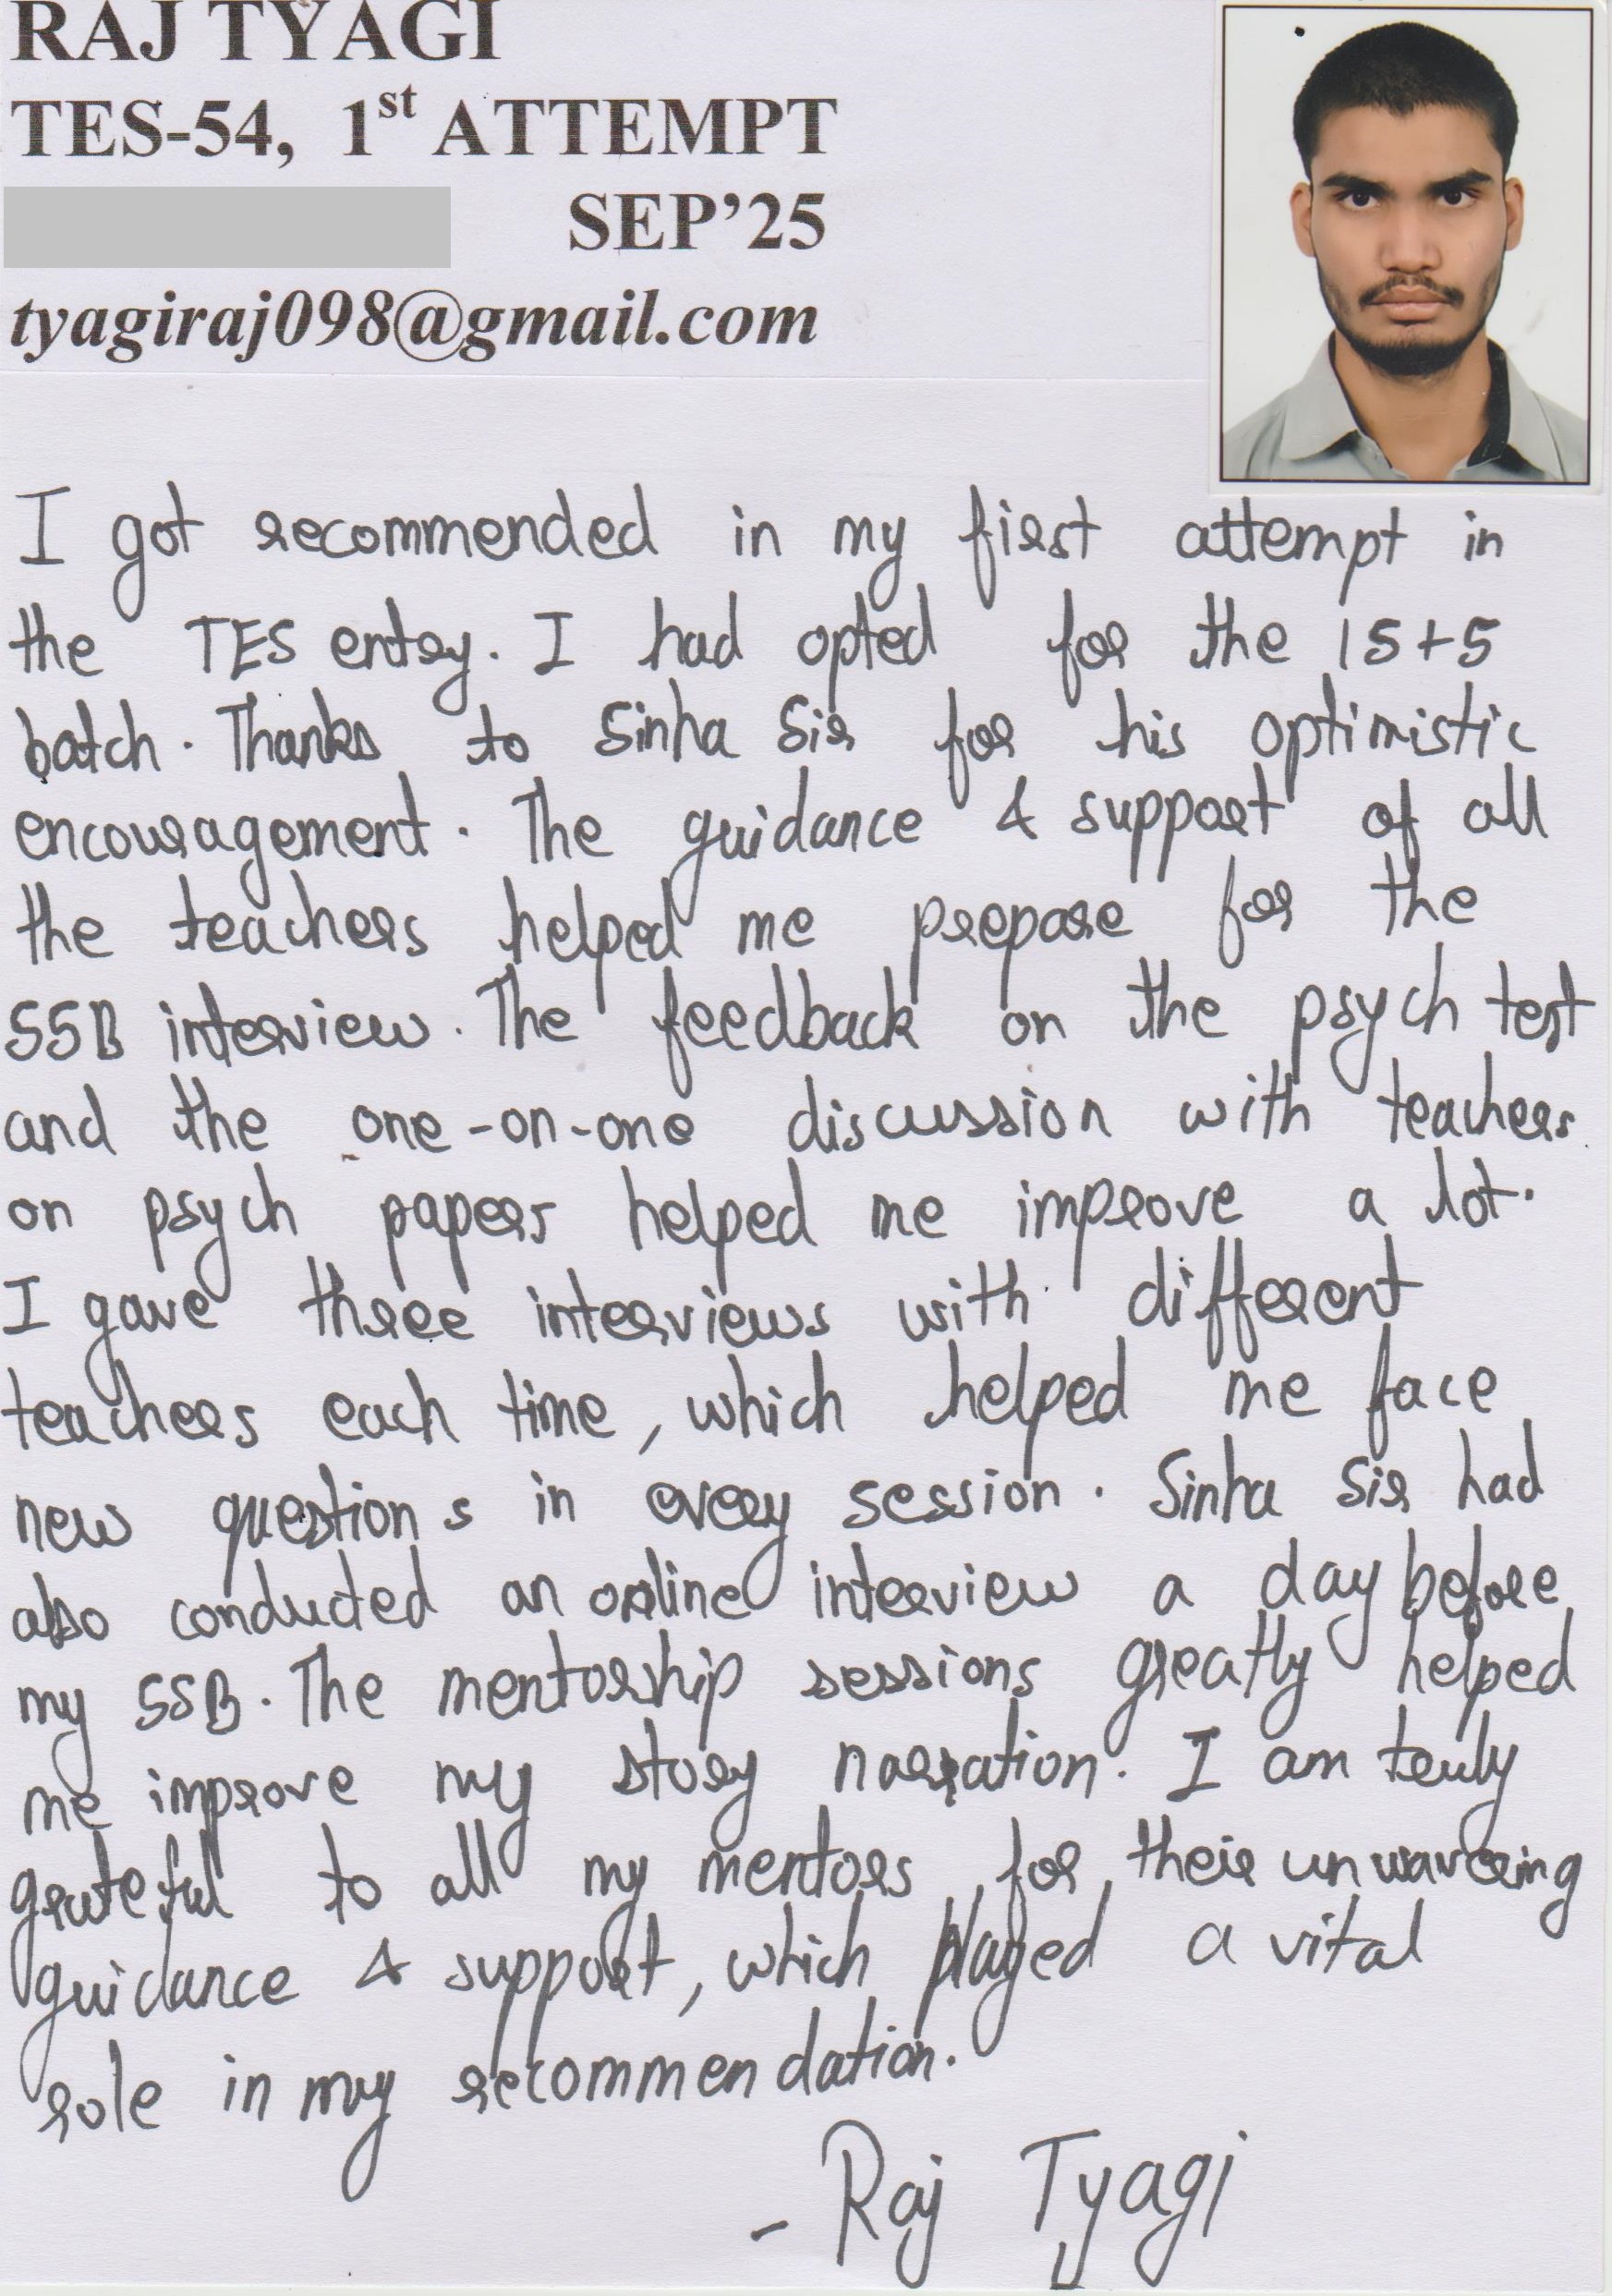 RAJ TYAGI
TES-54, 1st ATTEMPT
SEP'25
tyagiraj098@gmail.com
I got recommended in my first attempt in
the TES entry. I had opted for the 15+5
batch. Thanks to Sinha Sir for his optimistic
encouragement. The guidance & support of all
the teachers helped me prepare for the
SSB interview. The feedback on the psych test
and the one-on-one discussion with teachers
on psych papers helped me improve a lot.
I gave three interviews with different
teachers each time, which helped me face
new questions in every session. Sinha Sir had
also conducted an online interview a day before
my SSB. The mentorship sessions greatly helped
me improve my story narration. I am truly
grateful to all my mentors for their unwavering
guidance & support, which played a vital
role in my recommendation.
- Raj Tyagi